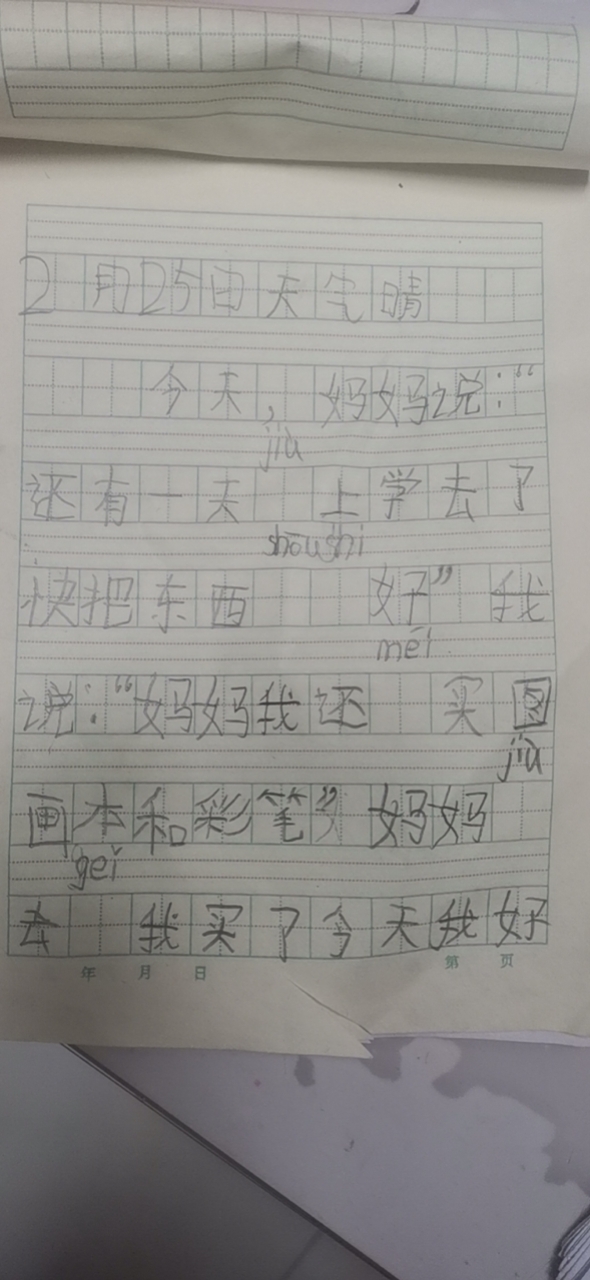 2月25日天气晴
今天，妈妈说：“
jiù
还有一天 上学去了
shōu shi
快把东西 好” 我
méi
说：“妈妈我还 买图
jiù
画本和彩笔” 妈妈
gei
去 我买了今天我好
年 月 日 第 页